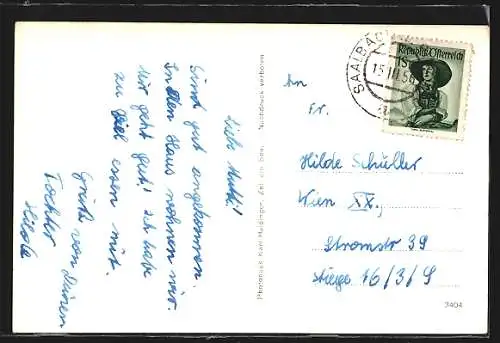 Liebe Mutti!
Sind gut angekommen.
In dem Haus wohnen wir.
Mir geht gut! Ich habe
zu viel essen mit.
Grüße von Deinem
Tochter
Hilde
Photohaus Karl Haidinger, Zell am See. Nachdruck verboten
An
Fr.
Hilde Schuller
Wien XX.,
Stromstr 39
Stiege 16/3/9
3404
SAALBACH
15 III 56
Republik Österreich
1S